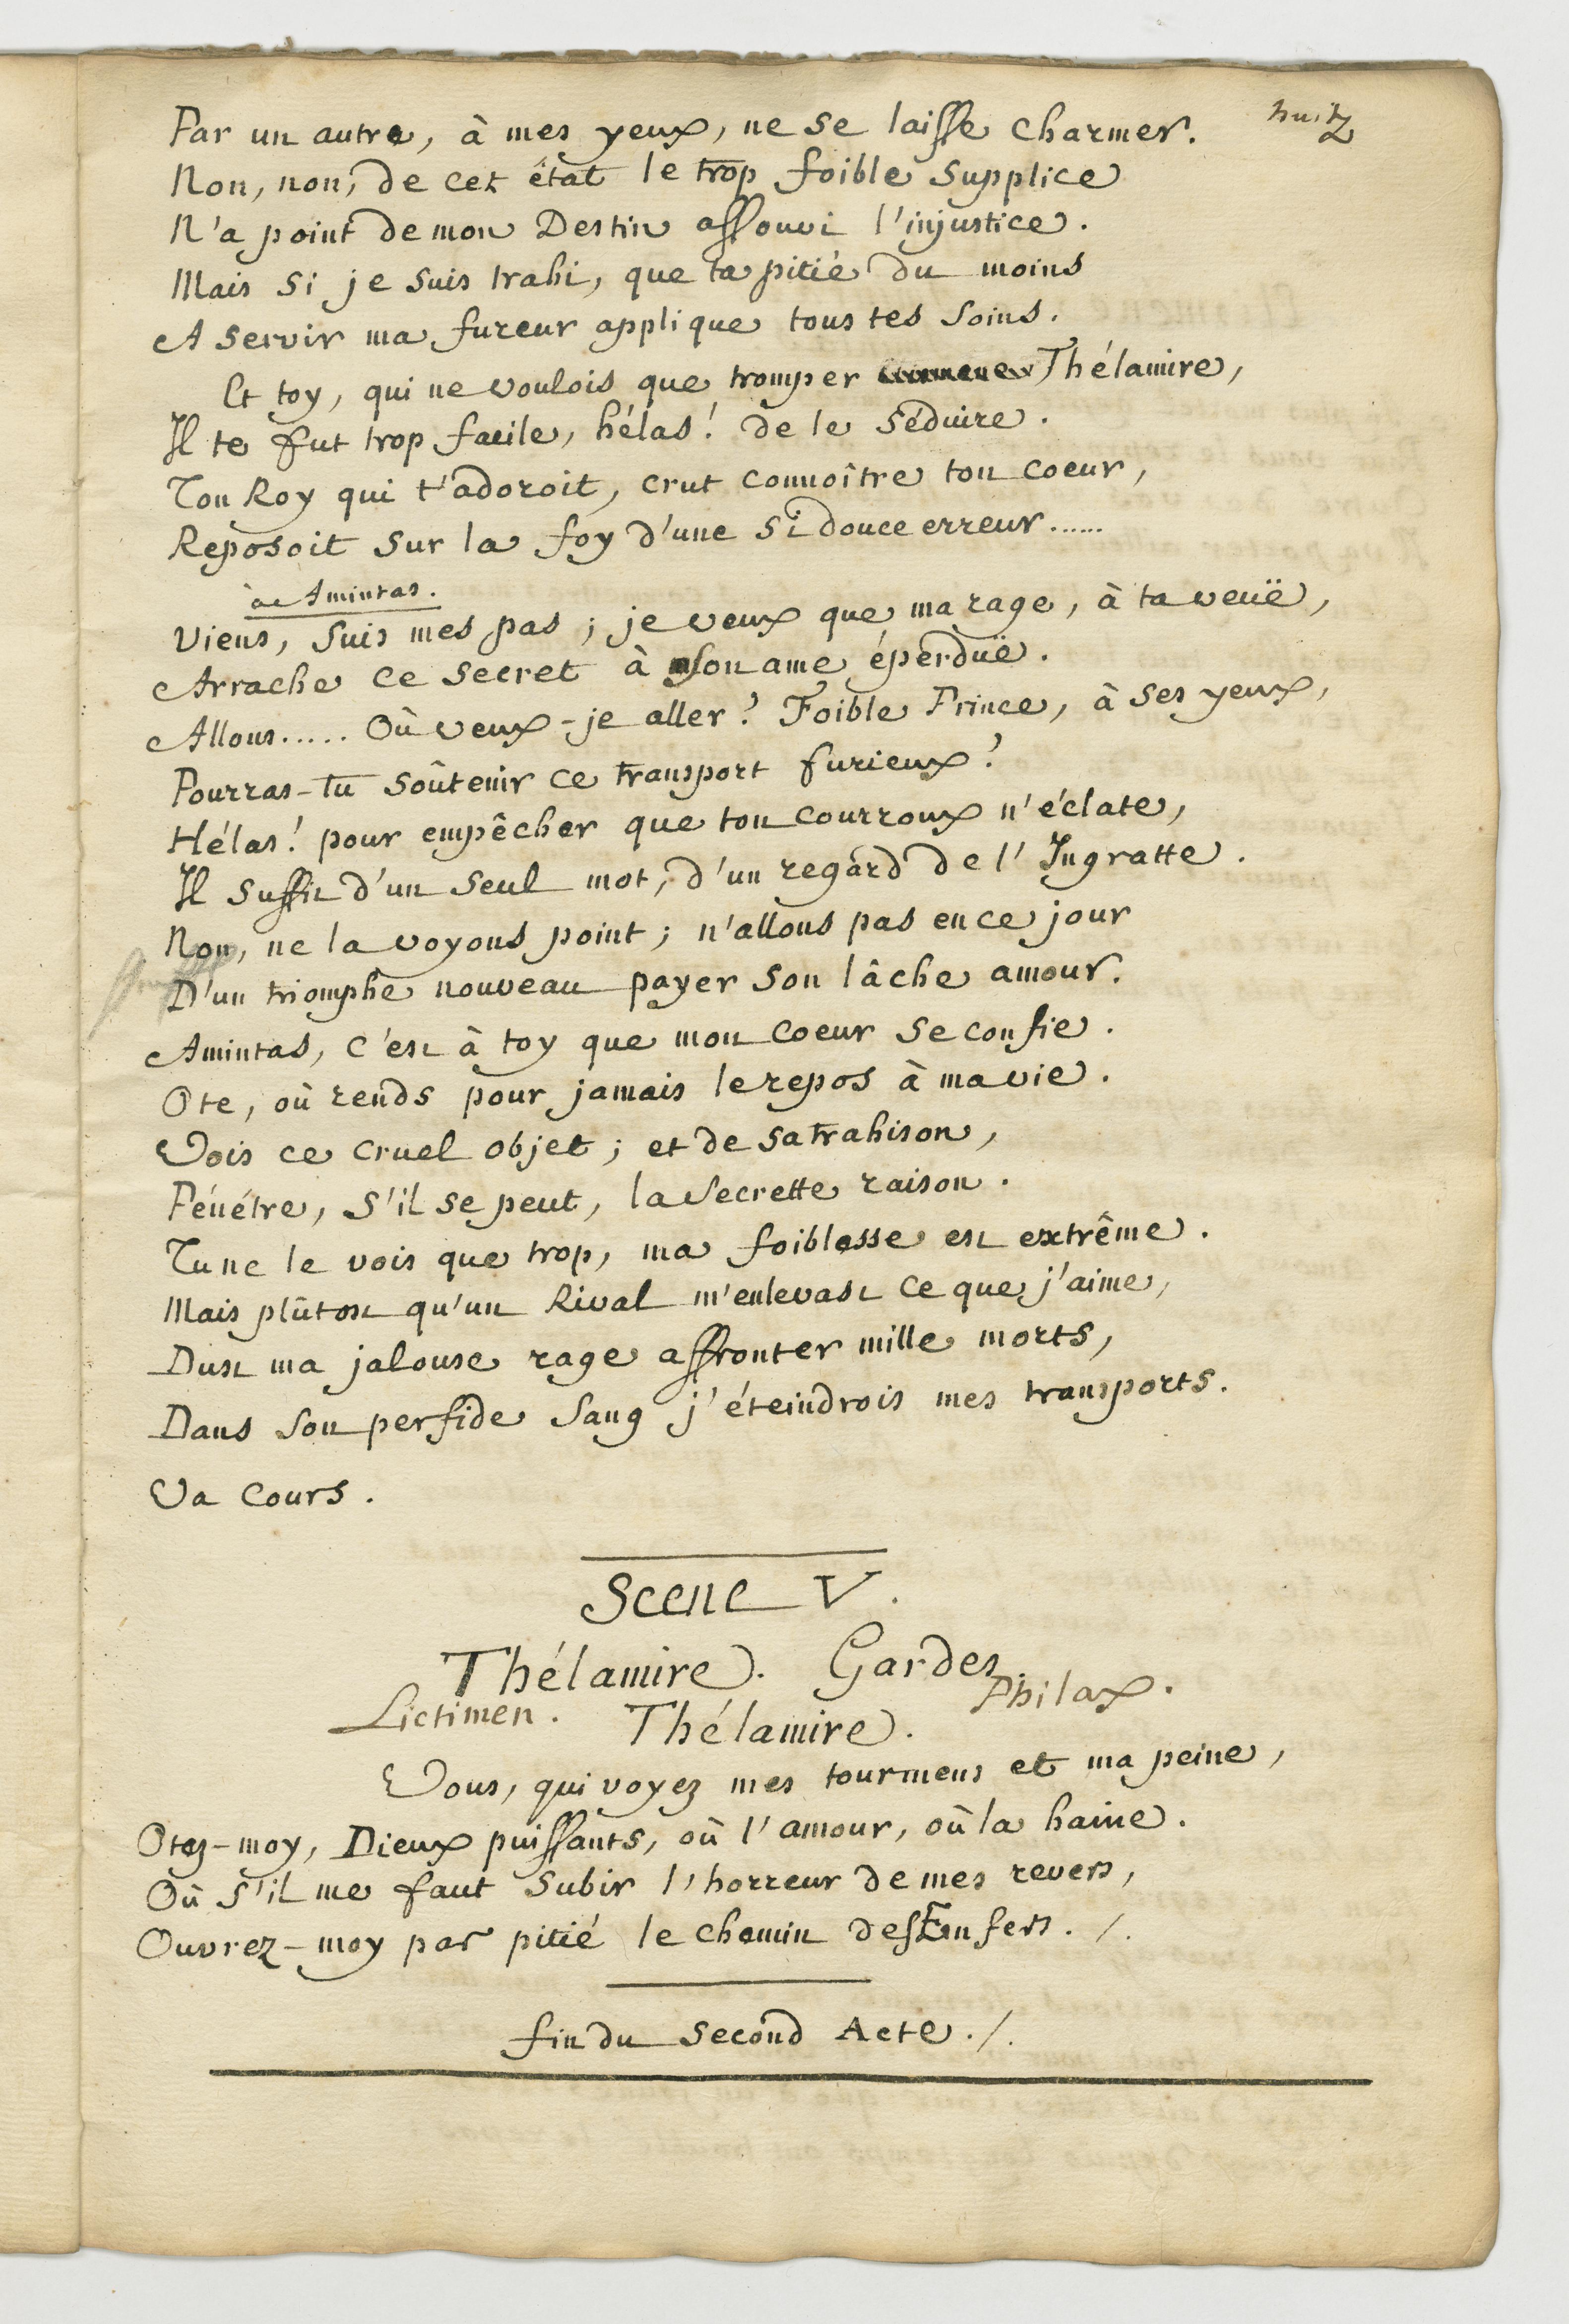 huit
Par un autre, à mes yeux, ne se laisse charmer.
Non, non, de cet état le trop foible supplice
N'a point de mon Destin assouvi l'injustice.
Mais si je suis trahi, que ta pitié du moins
A servir ma fureur applique tous tes soins.
Et toy, qui ne voulois que tromper Thélamire,
Il te fut trop facile, hélas! de le séduire.
Ton Roy qui t'adoroit, crut connoître ton coeur,
Reposoit sur la foy d'une si douce erreur......
à Amintas.
Viens, suis mes pas; je veux que ma rage, à ta veuë,
Arrache ce secret à son ame éperduë.
Allons..... Où veux-je aller? Foible Prince, à ses yeux,
Pourras-tu soûtenir ce transport furieux?
Hélas! pour empêcher que ton courroux n'éclate,
Il suffit d'un seul mot, d'un regard de l'Ingratte.
Non, ne la voyons point; n'allons pas en ce jour
D'un triomphe nouveau payer son lâche amour.
Amintas, c'est à toy que mon coeur se confie.
Ote, où rends pour jamais le repos à ma vie.
Vois ce cruel objet; et de sa trahison,
Pénétre, s'il se peut, la secrette raison.
Tu ne le vois que trop, ma foiblesse est extrême.
Mais plûtost qu'un Rival m'enlevast ce que j'aime,
Dust ma jalouse rage affronter mille morts,
Dans son perfide sang j'éteindrois mes transports.
Va cours.
Scene V.
Thélamire. Gardes
Lictimen. Philax.
Thélamire.
Vous, qui voyez mes tourmens et ma peine,
Otez-moy, Dieux puissants, où l'amour, où la haine.
Où s'il me faut subir l'horreur de mes revers,
Ouvrez-moy par pitié le chemin des Enfers. /.
fin du second Acte. /.